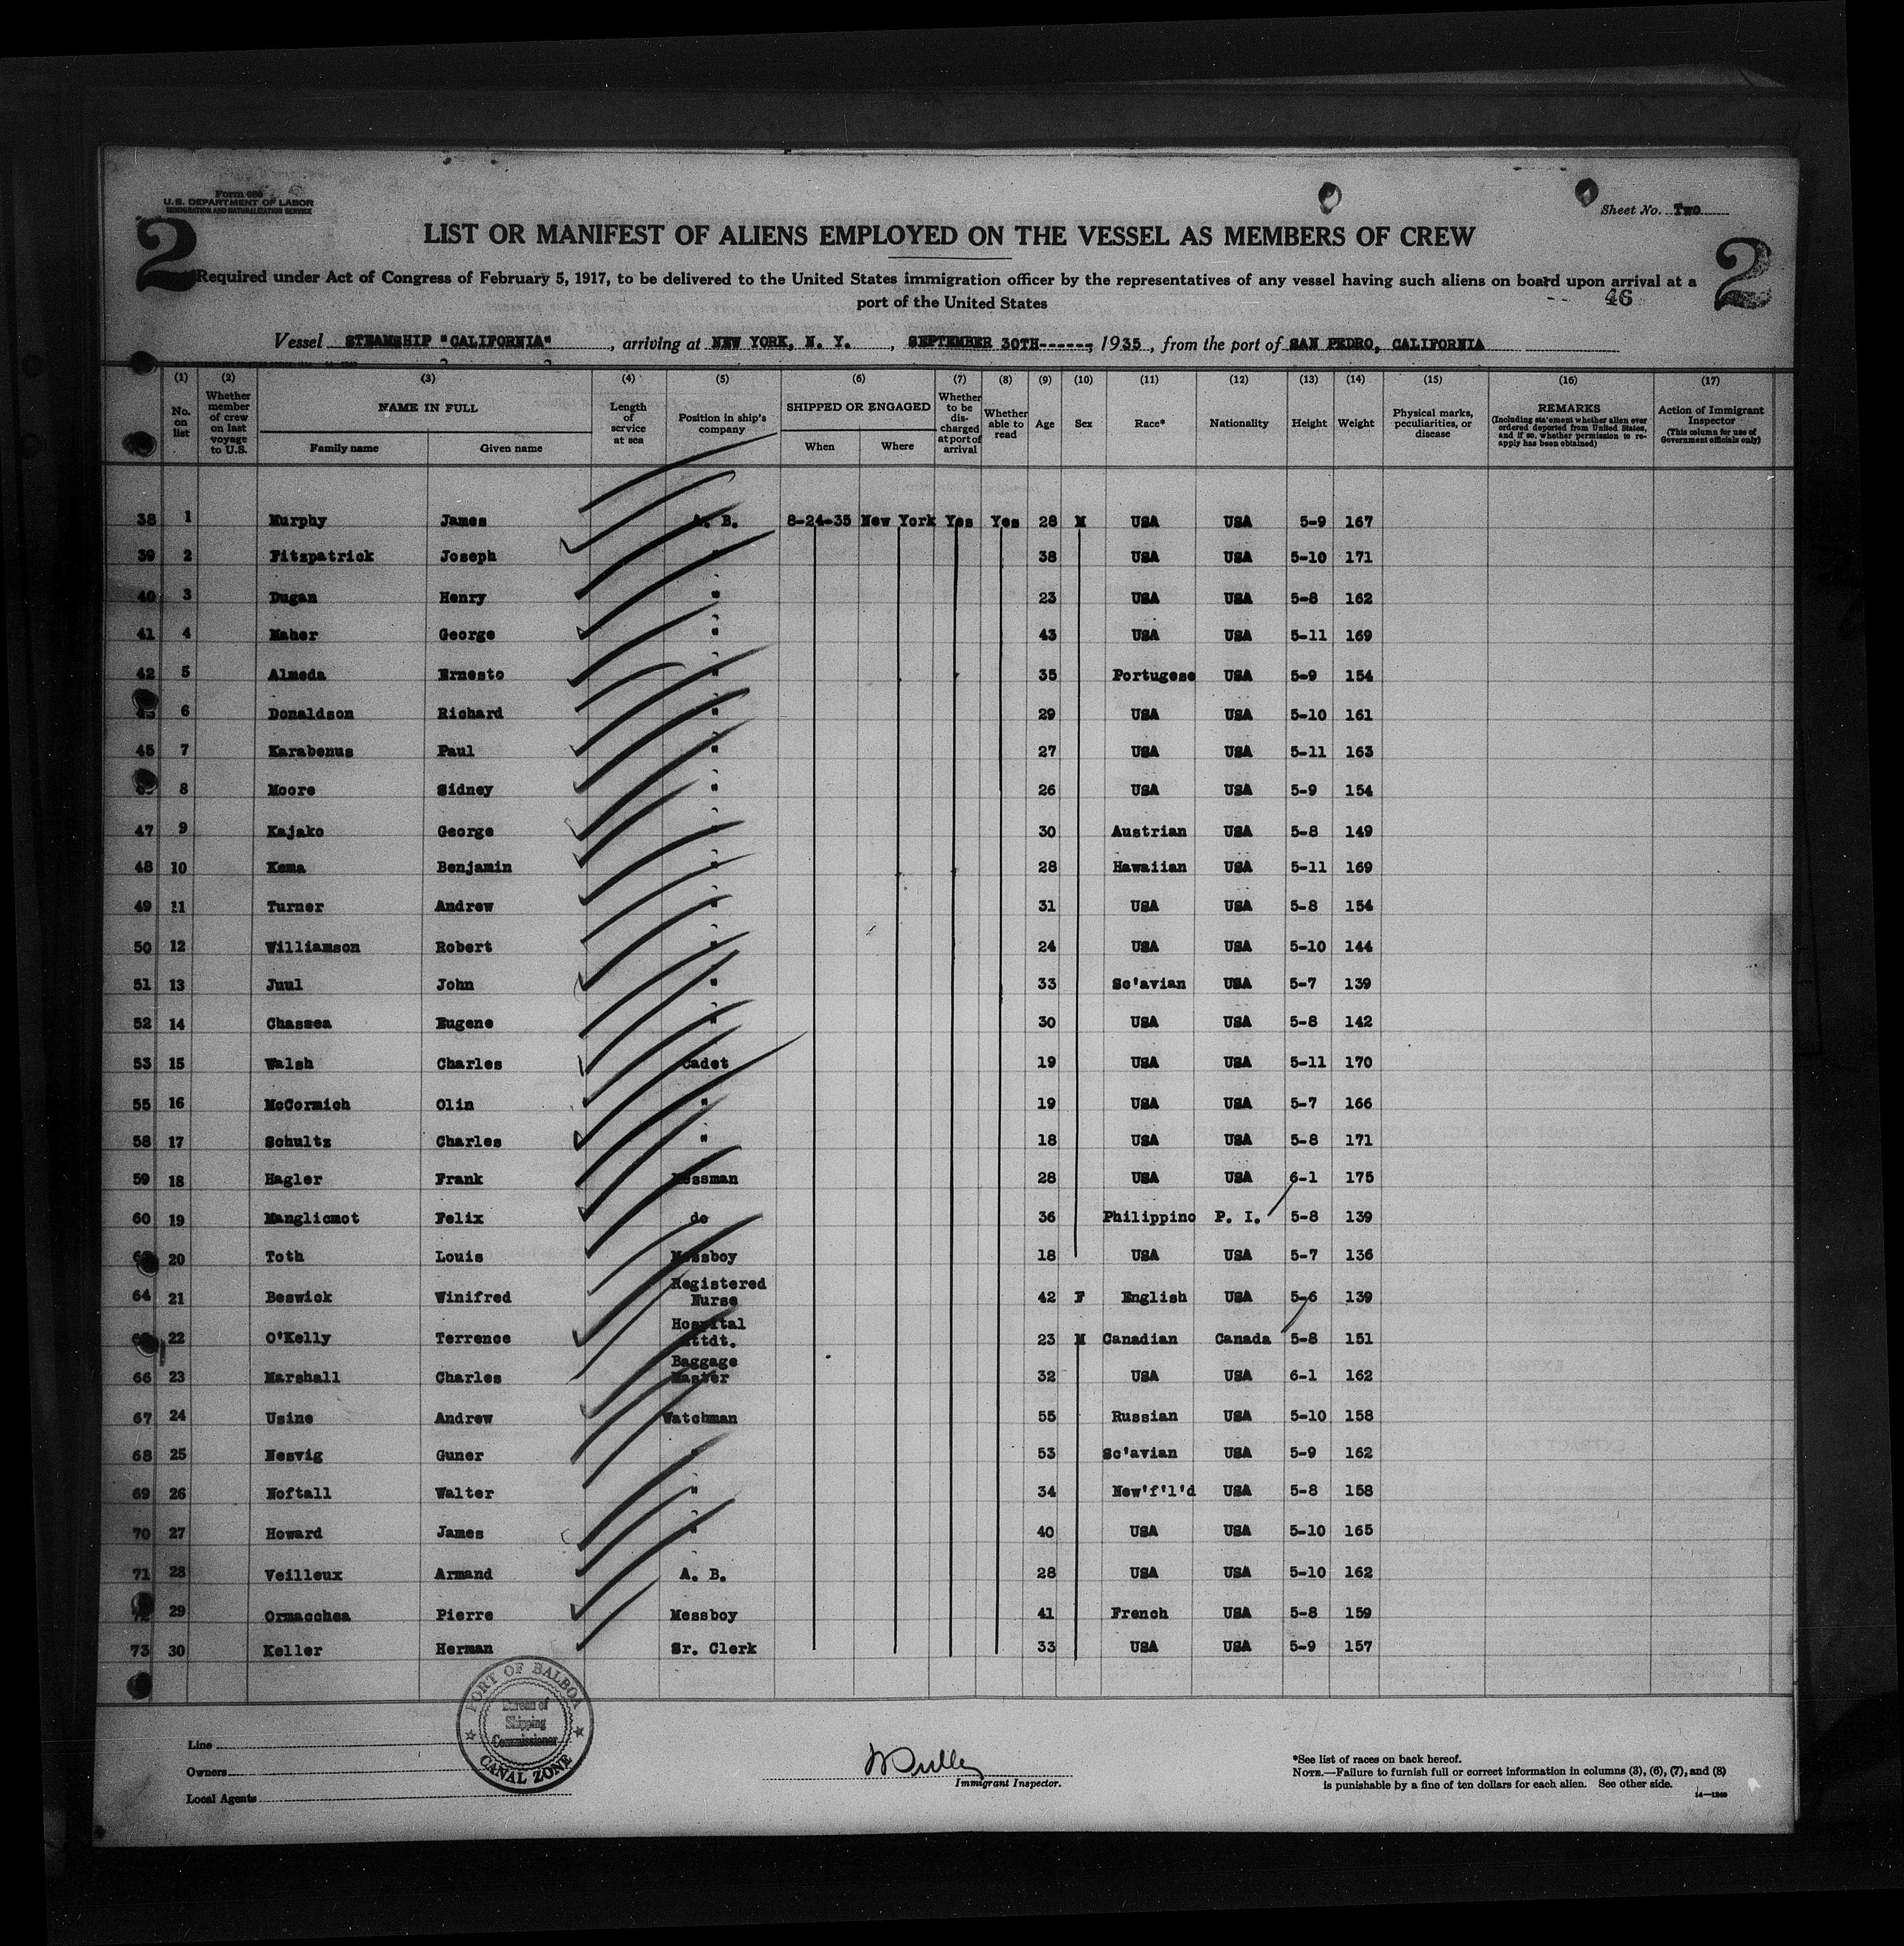 Form 680
U.S. DEPARTMENT OF LABOR
IMMIGRATION AND NATURALIZATION SERVICE
Sheet No. Two
2
2
LIST OR MANIFEST OF ALIENS EMPLOYED ON THE VESSEL AS MEMBERS OF CREW
Required under Act of Congress of February 5, 1917, to be delivered to the United States immigration officer by the representatives of any vessel having such aliens on board upon arrival at a
port of the United States
46
Vessel STEAMSHIP "CALIFORNIA", arriving at NEW YORK, N. Y., SEPTEMBER 30TH------, 1935, from the port of SAN PEDRO, CALIFORNIA
(1) (2) (3) (4) (5) (6) (7) (8) (9) (10) (11) (12) (13) (14) (15) (16) (17)
No. on list
Whether member of crew on last voyage to U.S.
NAME IN FULL
Family name Given name
Length of service at sea
Position in ship's company
SHIPPED OR ENGAGED
When Where
Whether to be discharged at port of arrival
Whether able to read
Age
Sex
Race*
Nationality
Height
Weight
Physical marks, peculiarities, or disease
REMARKS
(Including statement whether alien ever ordered deported from United States, and if so, whether permission to reapply has been obtained)
Action of Immigrant Inspector
(This column for use of Government officials only)
38 1 Murphy James A. B. 8-24-35 New York Yes Yes 28 M USA USA 5-9 167
39 2 Fitzpatrick Joseph " 38 USA USA 5-10 171
40 3 Dugan Henry " 23 USA USA 5-8 162
41 4 Maher George " 43 USA USA 5-11 169
42 5 Almeda Ernesto " 35 Portugese USA 5-9 154
6 Donaldson Richard " 29 USA USA 5-10 161
45 7 Karabenus Paul " 27 USA USA 5-11 163
8 Moore Sidney " 26 USA USA 5-9 154
47 9 Kajako George " 30 Austrian USA 5-8 149
48 10 Kema Benjamin " 28 Hawaiian USA 5-11 169
49 11 Turner Andrew " 31 USA USA 5-8 154
50 12 Williamson Robert " 24 USA USA 5-10 144
51 13 Juul John " 33 Sc'avian USA 5-7 139
52 14 Chassea Eugene " 30 USA USA 5-8 142
53 15 Walsh Charles Cadet 19 USA USA 5-11 170
55 16 McCormich Olin " 19 USA USA 5-7 166
58 17 Schultz Charles " 18 USA USA 5-8 171
59 18 Hagler Frank Messman 28 USA USA 6-1 175
60 19 Manglicmot Felix do 36 Philippino P. I. 5-8 139
20 Toth Louis Messboy 18 USA USA 5-7 136
64 21 Beswick Winifred Registered Nurse 42 F English USA 5-6 139
22 O'Kelly Terrence Hospital Attdt. 23 M Canadian Canada 5-8 151
66 23 Marshall Charles Baggage Master 32 USA USA 6-1 162
67 24 Usine Andrew Watchman 55 Russian USA 5-10 158
68 25 Nesvig Guner " 53 Sc'avian USA 5-9 162
69 26 Noftall Walter " 34 New'f'l'd USA 5-8 158
70 27 Howard James " 40 USA USA 5-10 165
71 28 Veilleux Armand A. B. 28 USA USA 5-10 162
72 29 Ormacchea Pierre Messboy 41 French USA 5-8 159
73 30 Keller Herman Sr. Clerk 33 USA USA 5-9 157
PORT OF BALBOA
Bureau of
Shipping
Commissioner
CANAL ZONE
Line
Owners
Local Agents
Immigrant Inspector.
*See list of races on back hereof.
NOTE.—Failure to furnish full or correct information in columns (3), (6), (7), and (8)
is punishable by a fine of ten dollars for each alien. See other side.
14—1240